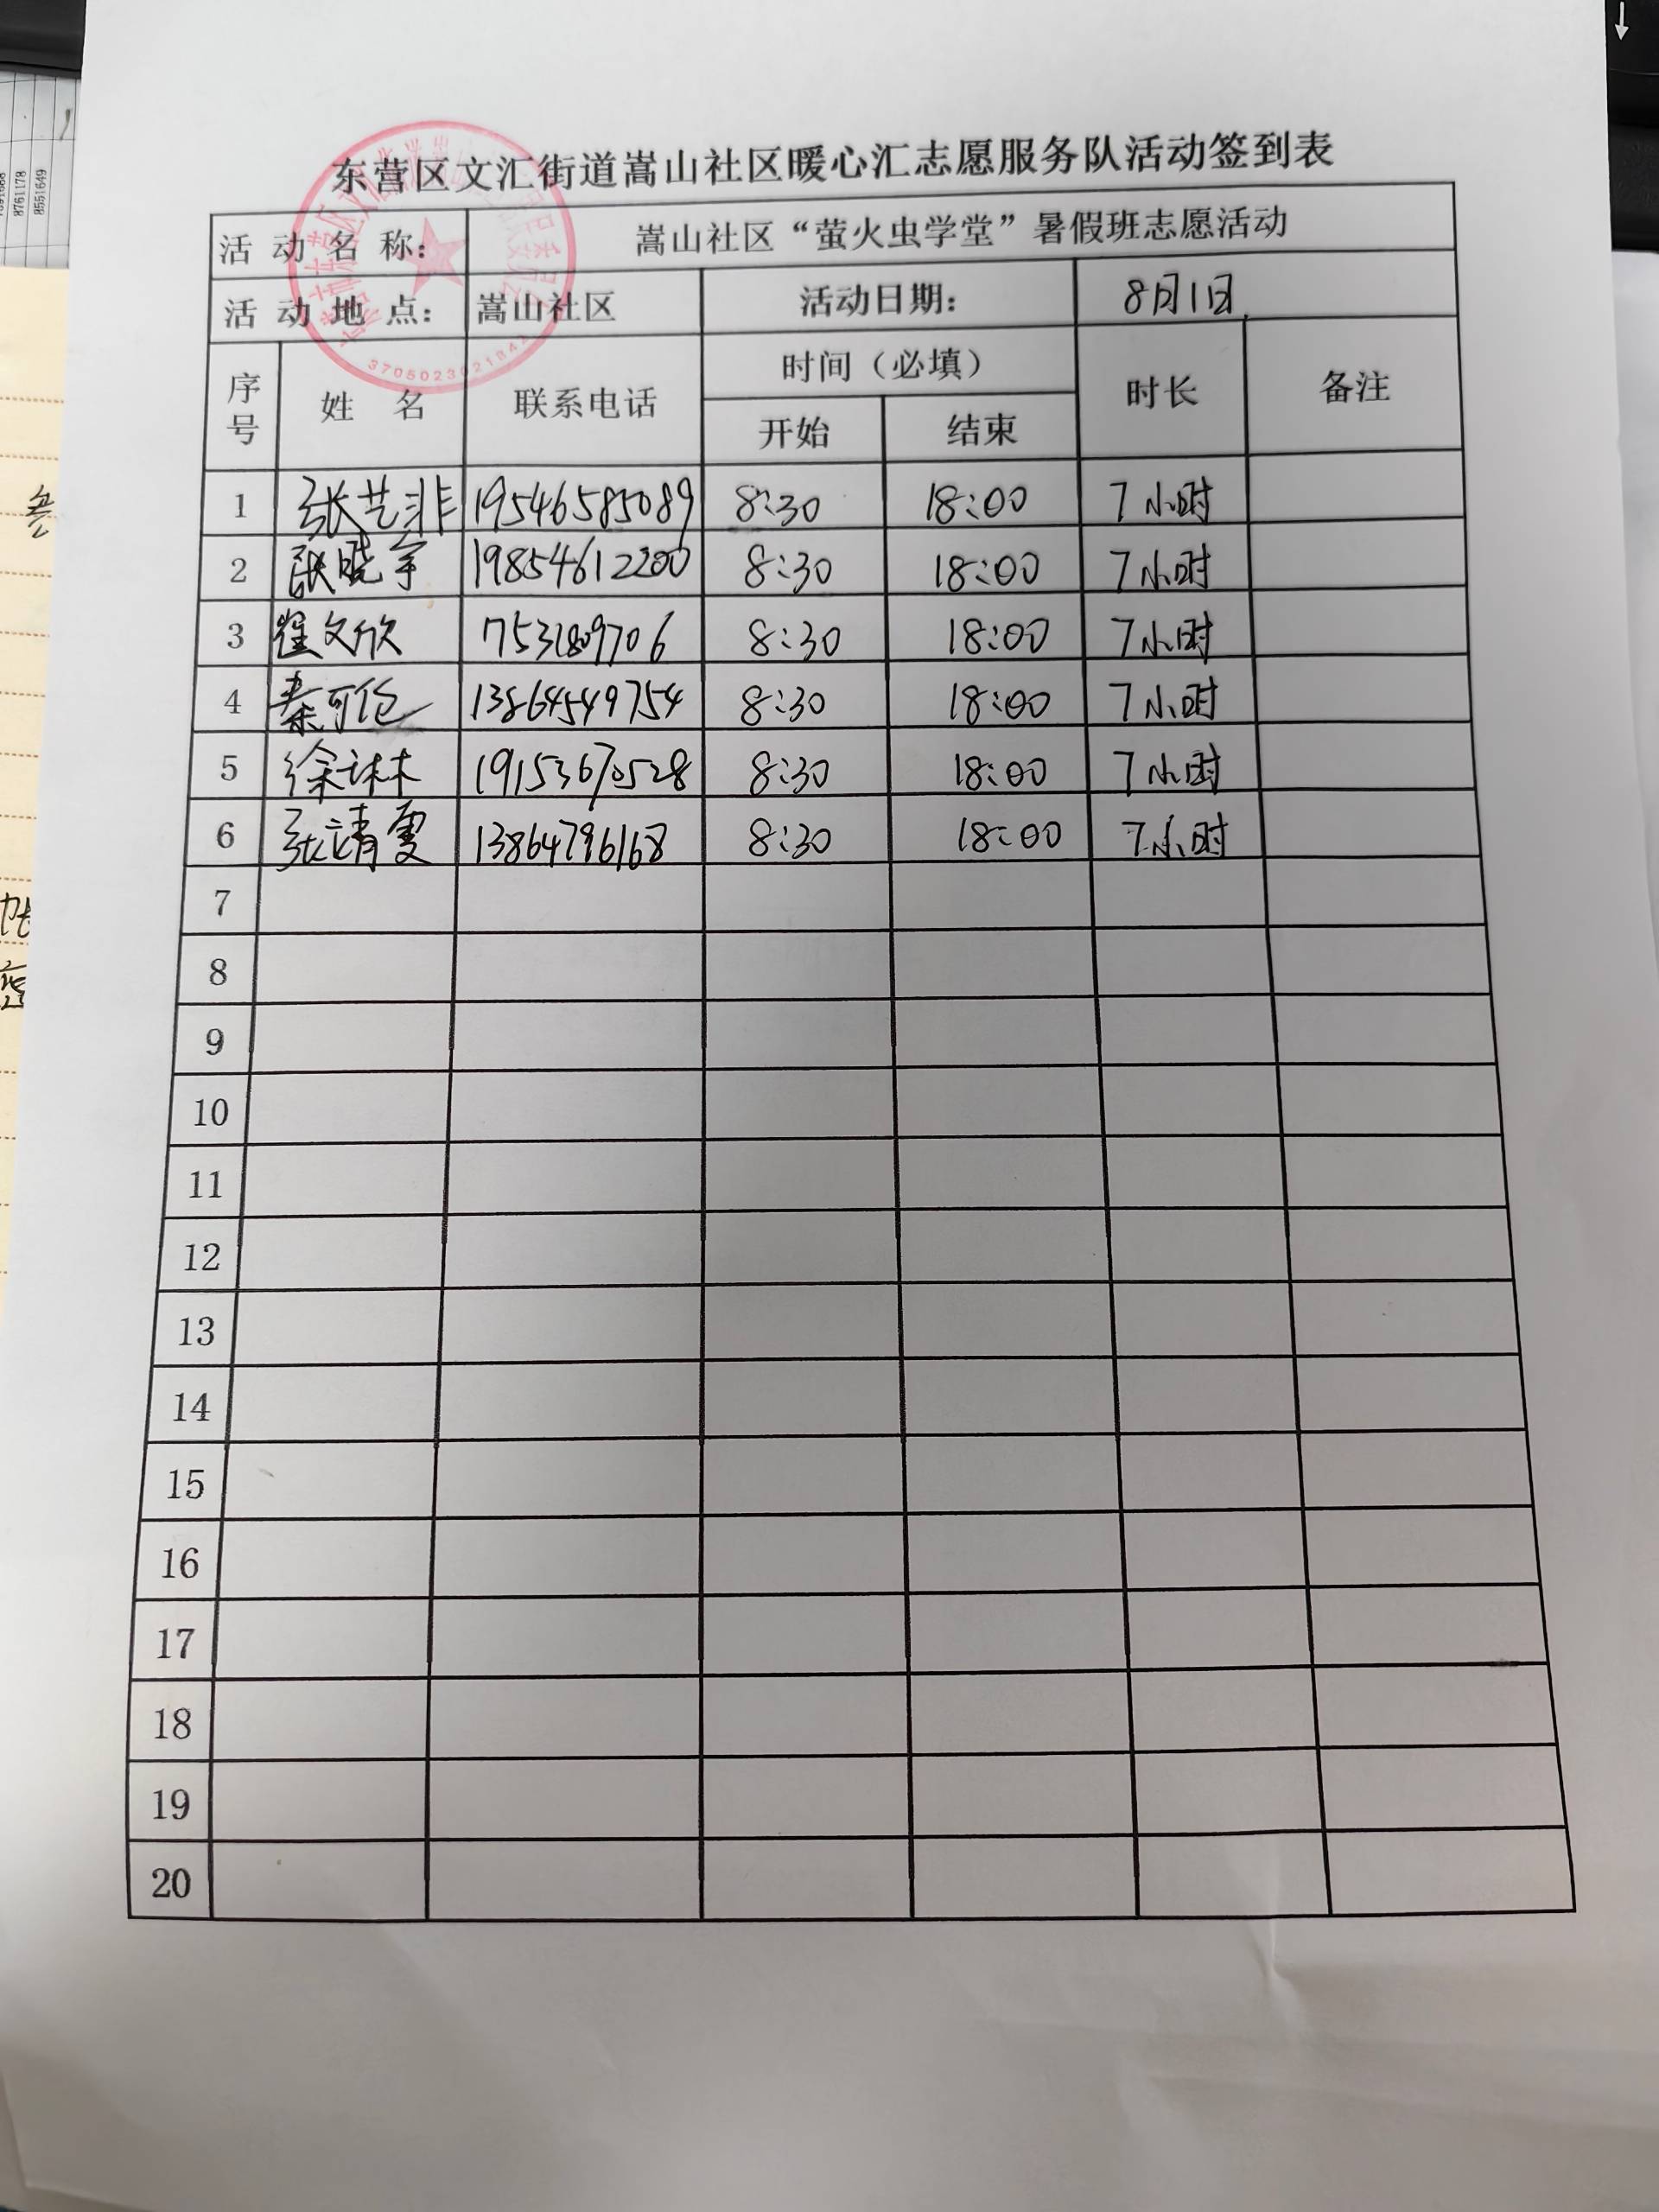 8761178
8551649
东营区文汇街道嵩山社区暖心汇志愿服务队活动签到表
活动名称： 嵩山社区“萤火虫学堂”暑假班志愿活动
活动地点： 嵩山社区 活动日期： 8月1日
序号 姓名 联系电话 时间（必填） 时长 备注
开始 结束
3705023021842
1 张艺菲 19546585089 8:30 18:00 7小时
2 张晓宇 19854612200 8:30 18:00 7小时
3 崔文欣 8:30 18:00 7小时
4 秦可 13864549754 8:30 18:00 7小时
5 徐 19153670528 8:30 18:00 7小时
6 张靖雯 13864796168 8:30 18:00 7小时
7
8
9
10
11
12
13
14
15
16
17
18
19
20